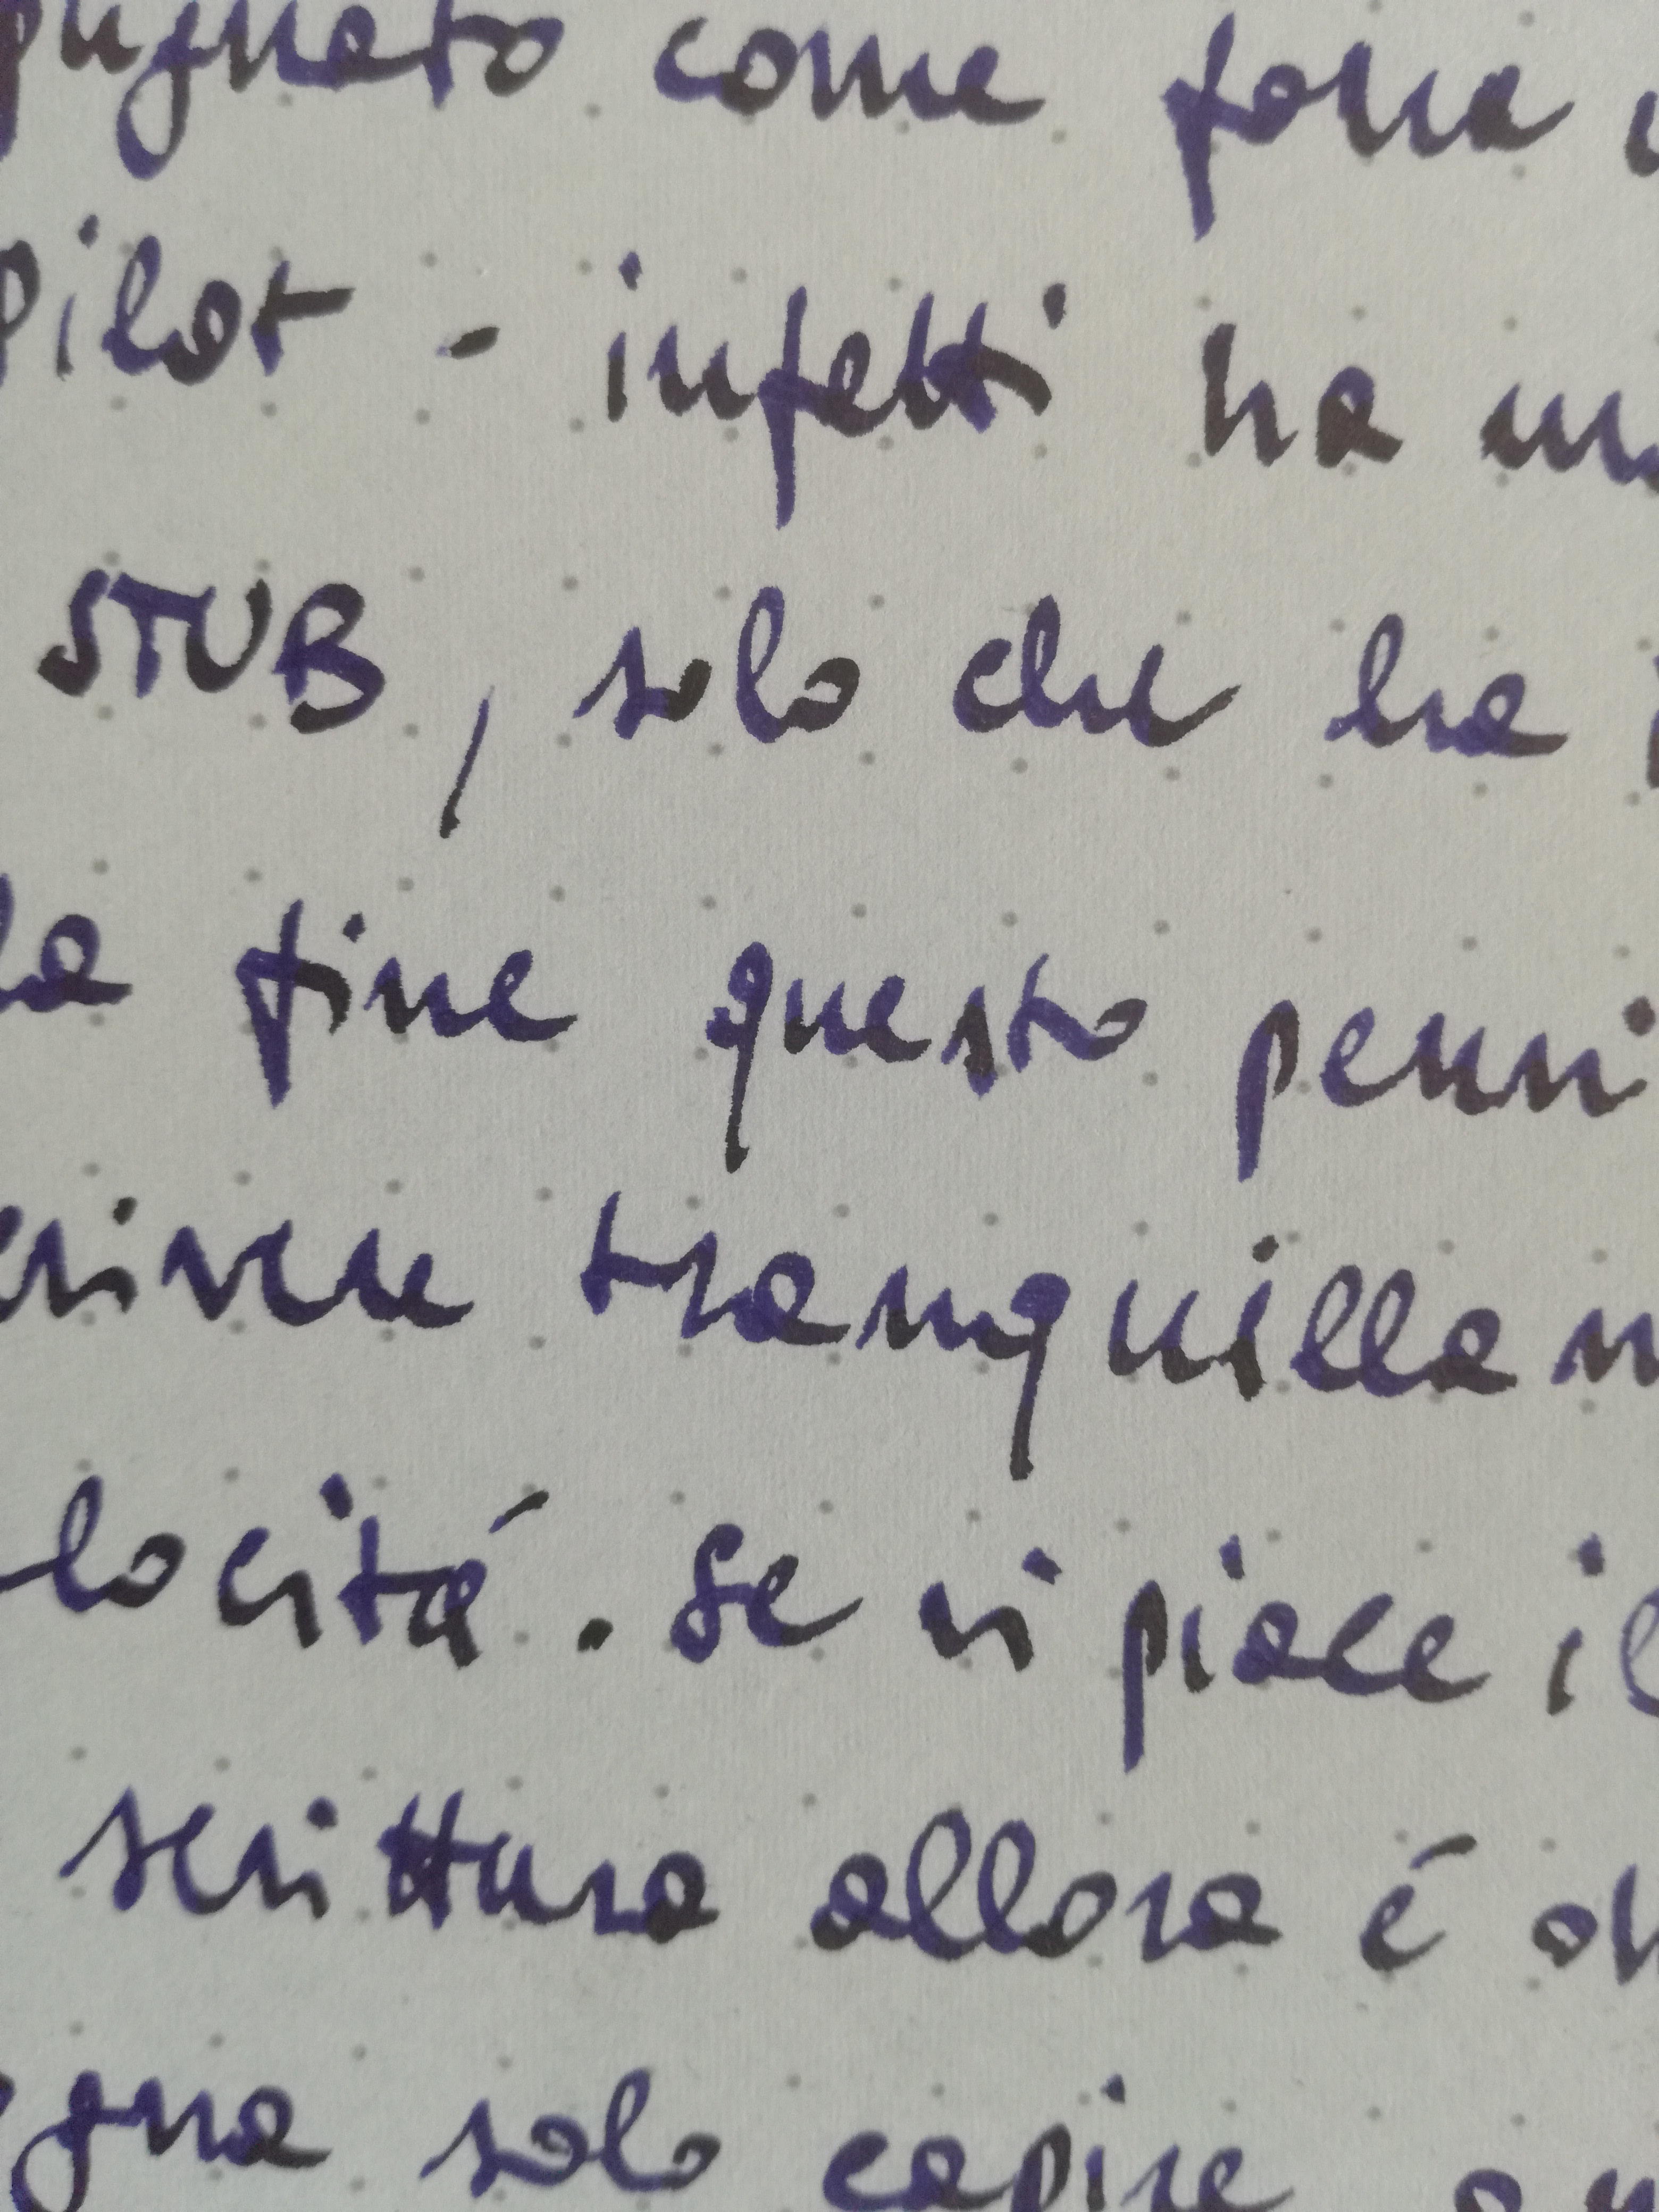 pugnato come fosse
Pilot - infatti ha un
STUB, solo che ha
la fine questo penni
crivere tranquillam
locitá. Se vi piace il
scrittura allora é
gna solo capire